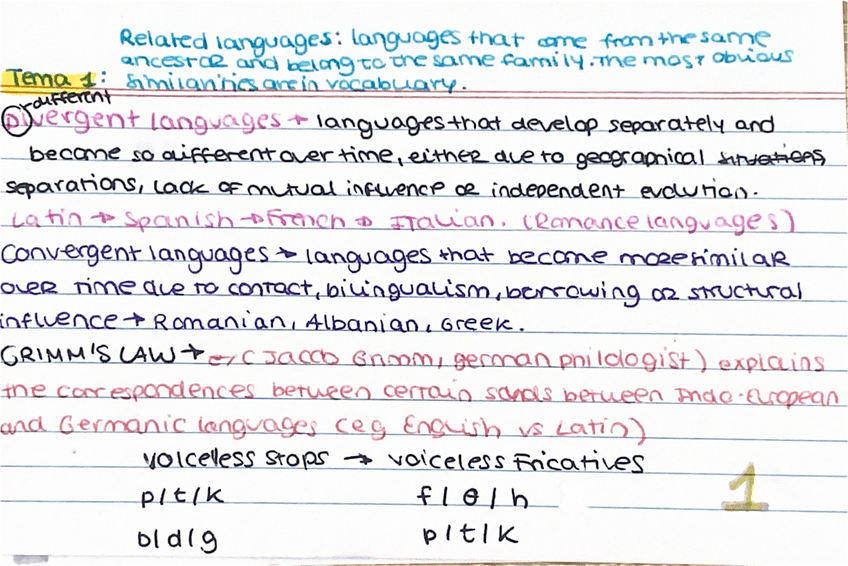 Related languages: languages that come from the same
ancestor and belong to the same family. The most obvious
Tema 1: similarities are in vocabulary.
different
Divergent languages → languages that develop separately and
become so different over time, either due to geographical situations
separations, lack of mutual influence or independent evolution.
Latin → Spanish → French → Italian. (Romance languages)
Convergent languages → languages that become more similar
over time due to contact, bilingualism, borrowing or structural
influence → Romanian, Albanian, Greek.
GRIMM'S LAW → (Jacob Grimm, german philologist) explains
the correspondences between certain sands between Indo-European
and Germanic languages (eg English vs Latin)
voiceless stops → voiceless fricatives
p/t/k f/θ/h
b/d/g p/t/k
1